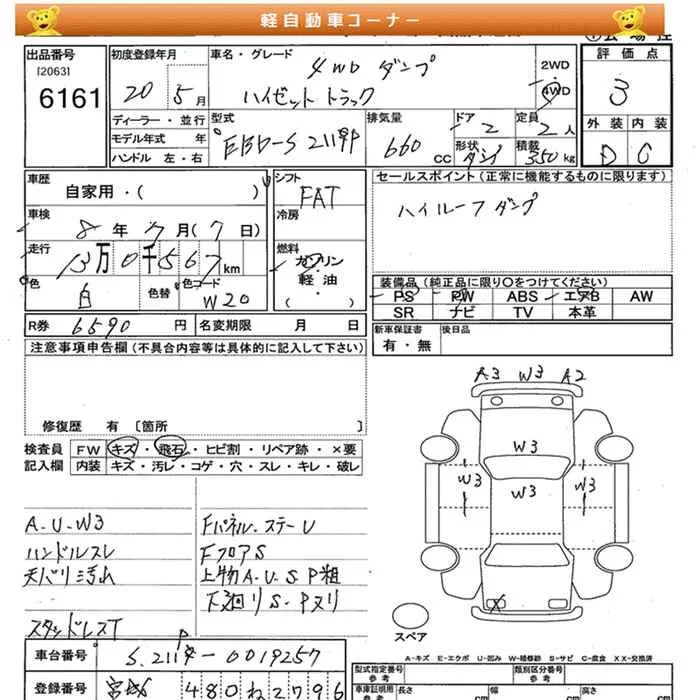 軽自動車コーナー
出品番号
[2063]
6161
初度登録年月
20 5月
車名・グレード
4WD ダンプ
ハイゼットトラック
2WD
4WD
評価点
3
外装 内装
D C
ディーラー・並行
モデル年式 年
ハンドル 左・右
型式
EBD-S211P
排気量
660 CC
ドア
2
定員
2人
形状
ダンプ
積載
350kg
車歴
自家用・( )
シフト
FAT
車検
8年7月(7日)
冷房
走行
13万0千567km
燃料
ガソリン
軽・油
・( )
色
白
色替
色コード
W20
R券 6590円
名変期限 月 日
セールスポイント(正常に機能するものに限ります)
ハイルーフダンプ
装備品(純正品に限り〇をつけてください)
PS PW ABS エアB AW
SR ナビ TV 本革
新車保証書
有・無
後日品
注意事項申告欄(不具合内容等は具体的に記入して下さい)
修復歴 有 〔箇所 〕
検査員
記入欄
FW キズ・飛石・ヒビ割・リペア跡・×要
内装 キズ・汚レ・コゲ・穴・スレ・キレ・破レ
A3 W3 A2
W3
W3 W3 W3
X
A.U.W3
ハンドルスレ
天バリ汚れ
スタッドレスT
Fパネル.ステーU
FフロアS
上物A.U.S.P粗
下廻リS.Pヌリ
スペア
A-キズ E-エクボ U-凹み W-補修跡 S-サビ C-腐食 XX-交換済
車台番号
S211P-0019257
登録番号
宮城 480ね2796
型式指定番号
参考
類別区分番号
参考
車庫証明用
参考
長さ cm
幅 cm
高さ cm